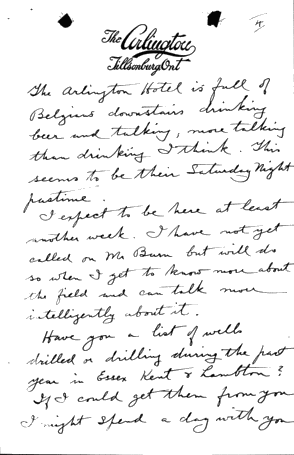 4.
The Arlington
Tillsonburg Ont
The Arlington Hotel is full of
Belgians downstairs drinking
beer and talking, more talking
than drinking I think. This
seems to be their Saturday Night
pastime.
I expect to be here at least
another week. I have not yet
called on Mr Burn but will do
so when I get to know more about
the field and can talk more
intelligently about it.
Have you a list of wells
drilled or drilling during the past
year in Essex Kent & Lambton?
If I could get them from you
I might spend a day with you